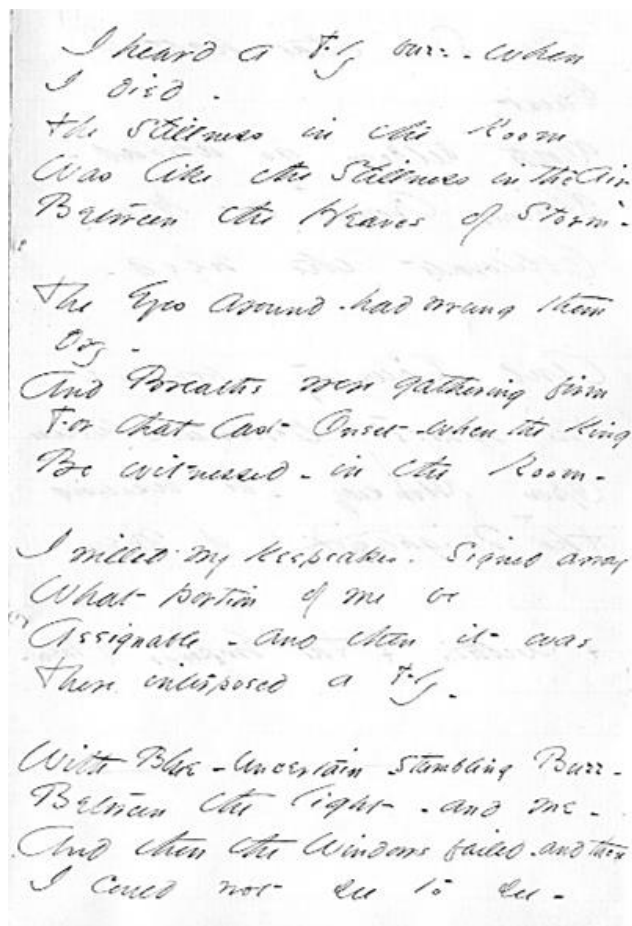 I heard a Fly buzz - when
I died -
The Stillness in the Room
Was like the Stillness in the Air -
Between the Heaves of Storm -
The Eyes around - had wrung them
dry -
And Breaths were gathering firm
For that last Onset - when the King
Be witnessed - in the Room -
I willed my Keepsakes - Signed away
What portion of me be
Assignable - and then it was
There interposed a Fly -
With Blue - uncertain stumbling Buzz -
Between the light - and me -
And then the Windows failed - and then
I could not see to see -